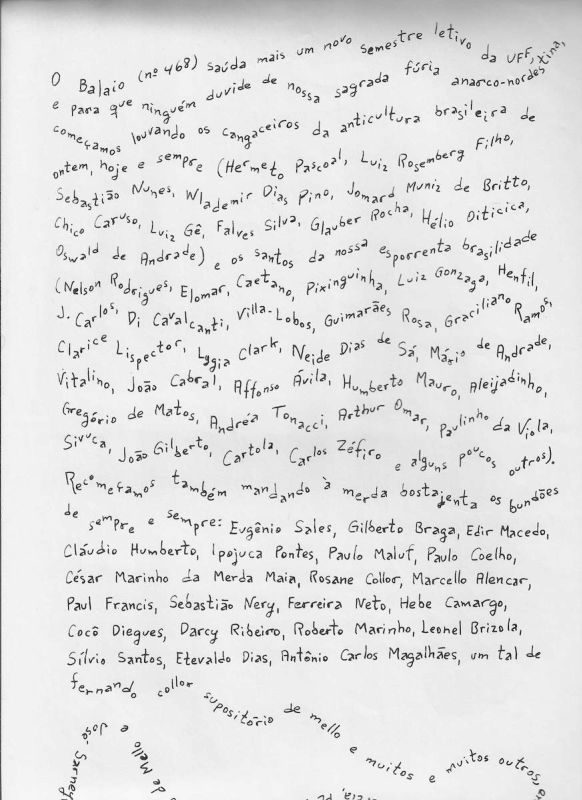 O Balaio (nº 468) saúda mais um novo semestre letivo da UFF,
e para que ninguém duvide de nossa sagrada fúria anarco-nordestina,
começamos louvando os cangaceiros da anticultura brasileira de
ontem, hoje e sempre (Hermeto Pascoal, Luiz Rosemberg Filho,
Sebastião Nunes, Wlademir Dias Pino, Jomard Muniz de Britto,
Chico Caruso, Luiz Gê, Falves Silva, Glauber Rocha, Hélio Oiticica,
Oswald de Andrade) e os santos da nossa esporrenta brasilidade
(Nelson Rodrigues, Elomar, Caetano, Pixinguinha, Luiz Gonzaga, Henfil,
J. Carlos, Di Cavalcanti, Villa-Lobos, Guimarães Rosa, Graciliano Ramos,
Clarice Lispector, Lygia Clark, Neide Dias de Sá, Mário de Andrade,
Vitalino, João Cabral, Affonso Ávila, Humberto Mauro, Aleijadinho,
Gregório de Matos, Andréa Tonacci, Arthur Omar, Paulinho da Viola,
Sivuca, João Gilberto, Cartola, Carlos Zéfiro e alguns poucos outros).
Recomeçamos também mandando à merda bostajenta os bundões
de sempre e sempre: Eugênio Sales, Gilberto Braga, Edir Macedo,
Cláudio Humberto, Ipojuca Pontes, Paulo Maluf, Paulo Coelho,
César Marinho da Merda Maia, Rosane Collor, Marcello Alencar,
Paul Francis, Sebastião Nery, Ferreira Neto, Hebe Camargo,
Cocô Diegues, Darcy Ribeiro, Roberto Marinho, Leonel Brizola,
Sílvio Santos, Etevaldo Dias, Antônio Carlos Magalhães, um tal de
fernando collor supositório de mello e muitos e muitos outros,
de Mello
e José Sarney